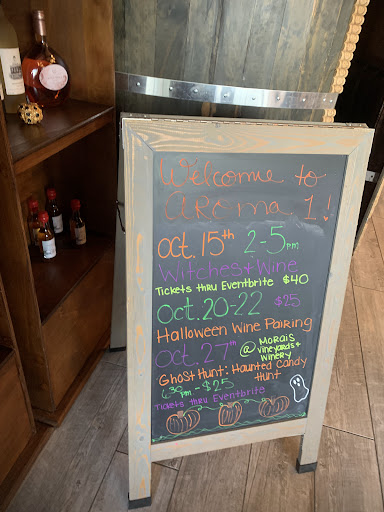 Welcome to
AROMA 1!
Oct. 15th 2-5pm
Witches & Wine
Tickets thru Eventbrite $40
Oct. 20-22 $25
Halloween Wine Pairing
Oct. 27th @ Morais Vineyards & Winery
Ghost Hunt: Haunted Candy Hunt
6:30pm - $25
Tickets thru Eventbrite